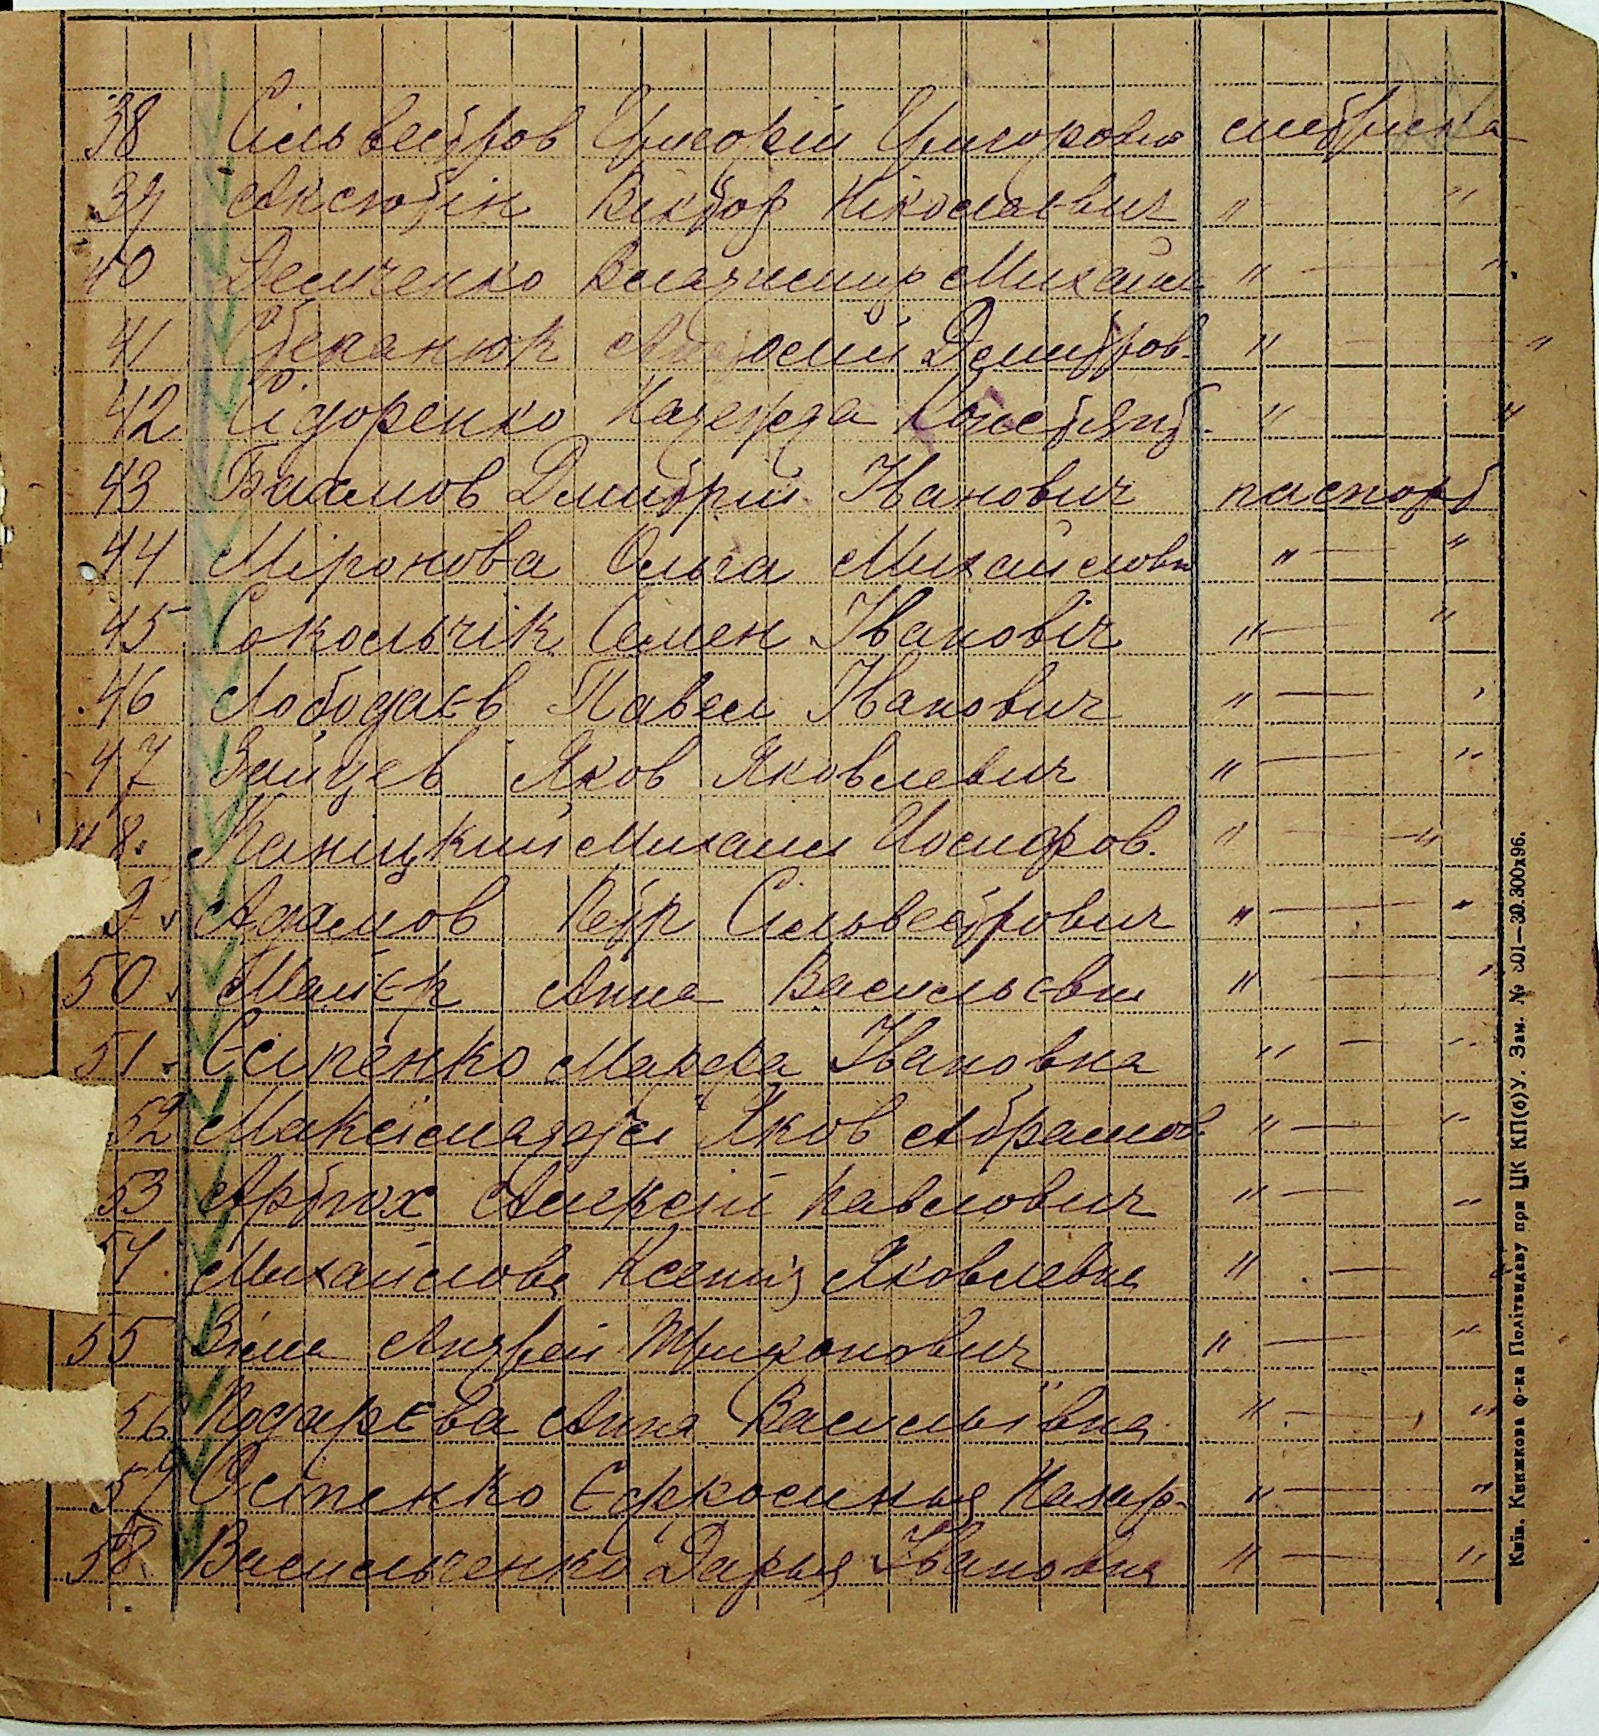 38 Сільвестров Григорій Григоров. метрика
39 Аксютін Віктор Ніколаєвич " "
40 Демченко Владимир Михайл " — "
41 Степанюк Дмитров. " — "
42 Сідоренко Надежда Констянт. " "
43 Баамов Дмитрій Іванович паспорт
44 Міронова Ольга Михайловн " — "
45 Сокольчік Семен Івановіч " — "
46 Лободаєв Павел Іванович " — "
47 Зайцев Яков Яковлевич " — "
48. Каніцкий Михаил Иосифов. " — "
9 Адамов Петр Сільвестрович " — "
50 Майєр Анна Васильєвн " — "
51 Єсіпенко Марфа Івановна " — "
52 Яков Абрамов. " — "
53 Арбтох Алексій Павлович " — "
54 Михайлова Ксенія Яковлевна " —
55 Зіма Андрей Трихонович " — "
56 Кодарєва Анна Васильївна " — "
57 Єсіпенко Єфросинья Назар. " — "
58. Васильченко Дарья Івановна " — "
Київ. Книжкова ф-ка Політвидаву при ЦК КП(б)У. Зам. № 301—30.300х96.